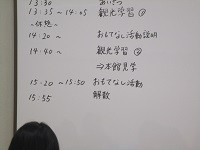 13:30 あいさつ
13:35 ～ 14:05 観光学習②
～休憩～
14:20 ～ おもてなし活動説明
14:40 ～ 観光学習③
⇒本館見学
15:20 ～ 15:50 おもてなし活動
15:55 解散